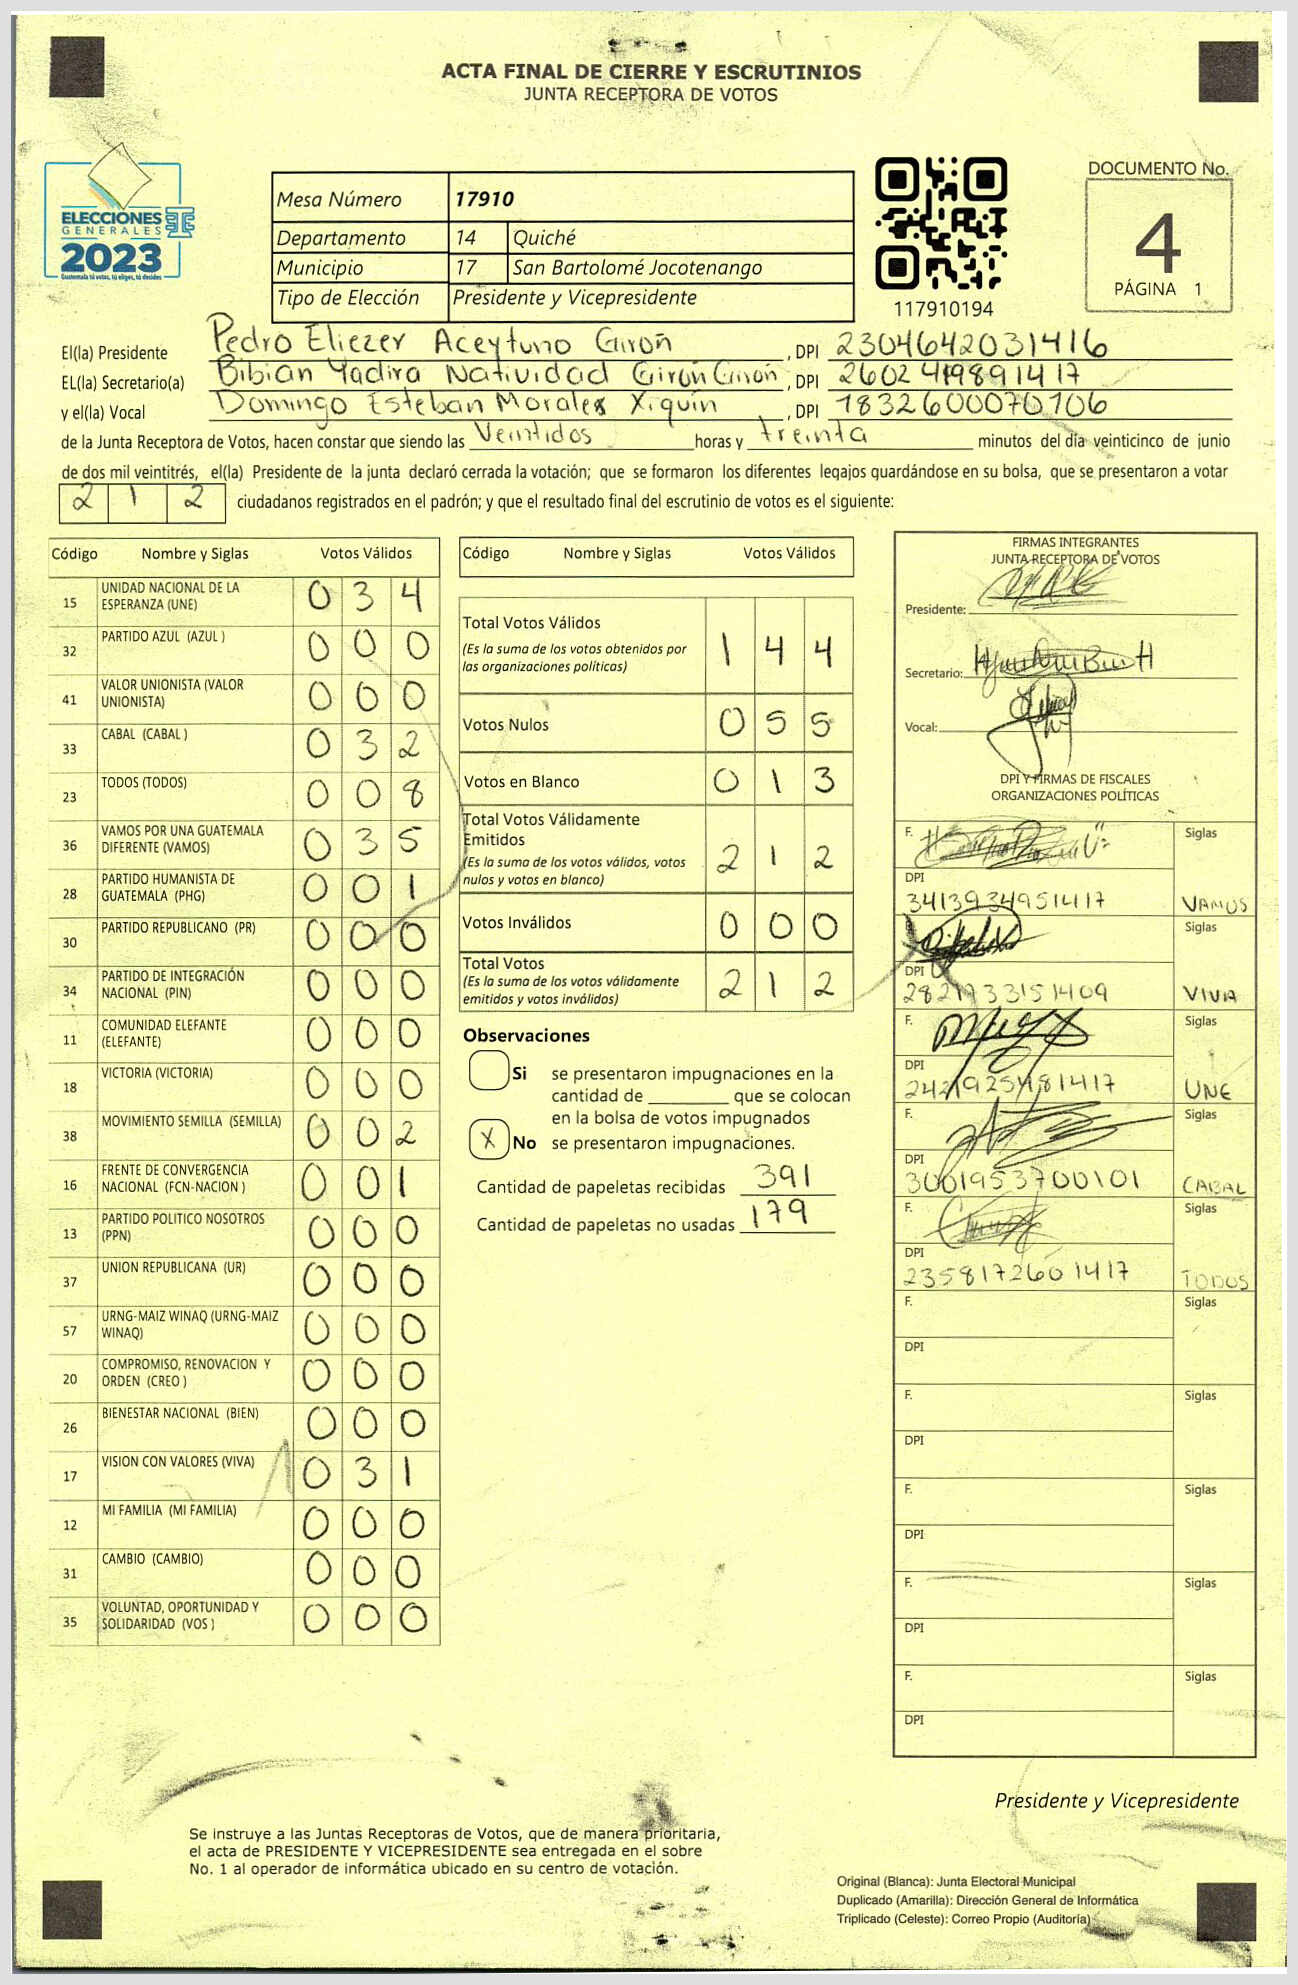 ACTA FINAL DE CIERRE Y ESCRUTINIOS
JUNTA RECEPTORA DE VOTOS
ELECCIONES
GENERALES
2023
Guatemala tú votas, tú eliges, tú decides
Mesa Número 17910
Departamento 14 Quiché
Municipio 17 San Bartolomé Jocotenango
Tipo de Elección Presidente y Vicepresidente
117910194
DOCUMENTO No.
4
PÁGINA 1
El(la) Presidente Pedro Eliezer Aceytuno Girón , DPI 2304642031416
EL(la) Secretario(a) Bibian Yadira Natividad Girón Girón , DPI 2602419891417
y el(la) Vocal Domingo Esteban Morales Xiquín , DPI 1832600070106
de la Junta Receptora de Votos, hacen constar que siendo las Veintidos horas y treinta minutos del día veinticinco de junio
de dos mil veintitrés, el(la) Presidente de la junta declaró cerrada la votación; que se formaron los diferentes legajos guardándose en su bolsa, que se presentaron a votar
2 1 2 ciudadanos registrados en el padrón; y que el resultado final del escrutinio de votos es el siguiente:
Código Nombre y Siglas Votos Válidos
15 UNIDAD NACIONAL DE LA ESPERANZA (UNE) 0 3 4
32 PARTIDO AZUL (AZUL ) 0 0 0
41 VALOR UNIONISTA (VALOR UNIONISTA) 0 0 0
33 CABAL (CABAL ) 0 3 2
23 TODOS (TODOS) 0 0 8
36 VAMOS POR UNA GUATEMALA DIFERENTE (VAMOS) 0 3 5
28 PARTIDO HUMANISTA DE GUATEMALA (PHG) 0 0 1
30 PARTIDO REPUBLICANO (PR) 0 0 0
34 PARTIDO DE INTEGRACIÓN NACIONAL (PIN) 0 0 0
11 COMUNIDAD ELEFANTE (ELEFANTE) 0 0 0
18 VICTORIA (VICTORIA) 0 0 0
38 MOVIMIENTO SEMILLA (SEMILLA) 0 0 2
16 FRENTE DE CONVERGENCIA NACIONAL (FCN-NACION ) 0 0 1
13 PARTIDO POLITICO NOSOTROS (PPN) 0 0 0
37 UNION REPUBLICANA (UR) 0 0 0
57 URNG-MAIZ WINAQ (URNG-MAIZ WINAQ) 0 0 0
20 COMPROMISO, RENOVACION Y ORDEN (CREO ) 0 0 0
26 BIENESTAR NACIONAL (BIEN) 0 0 0
17 VISION CON VALORES (VIVA) 0 3 1
12 MI FAMILIA (MI FAMILIA) 0 0 0
31 CAMBIO (CAMBIO) 0 0 0
35 VOLUNTAD, OPORTUNIDAD Y SOLIDARIDAD (VOS ) 0 0 0
Código Nombre y Siglas Votos Válidos
Total Votos Válidos 1 4 4
(Es la suma de los votos obtenidos por
las organizaciones políticas)
Votos Nulos 0 5 5
Votos en Blanco 0 1 3
Total Votos Válidamente
Emitidos 2 1 2
(Es la suma de los votos válidos, votos
nulos y votos en blanco)
Votos Inválidos 0 0 0
Total Votos 2 1 2
(Es la suma de los votos válidamente
emitidos y votos inválidos)
Observaciones
Si se presentaron impugnaciones en la
cantidad de ________ que se colocan
en la bolsa de votos impugnados
X No se presentaron impugnaciones.
Cantidad de papeletas recibidas 391
Cantidad de papeletas no usadas 179
FIRMAS INTEGRANTES
JUNTA RECEPTORA DE VOTOS
Presidente:
Secretario:
Vocal:
DPI Y FIRMAS DE FISCALES
ORGANIZACIONES POLÍTICAS
F. Siglas
DPI
3413934951417 VAMOS
F. Siglas
DPI
2821933151409 VIVA
F. Siglas
DPI
UNE
F. Siglas
DPI
3001953700101 CABAL
F. Siglas
DPI
2358172601417 TODOS
F. Siglas
DPI
F. Siglas
DPI
F. Siglas
DPI
F. Siglas
DPI
F. Siglas
DPI
Presidente y Vicepresidente
Se instruye a las Juntas Receptoras de Votos, que de manera prioritaria,
el acta de PRESIDENTE Y VICEPRESIDENTE sea entregada en el sobre
No. 1 al operador de informática ubicado en su centro de votación.
Original (Blanca): Junta Electoral Municipal
Duplicado (Amarilla): Dirección General de Informática
Triplicado (Celeste): Correo Propio (Auditoría)